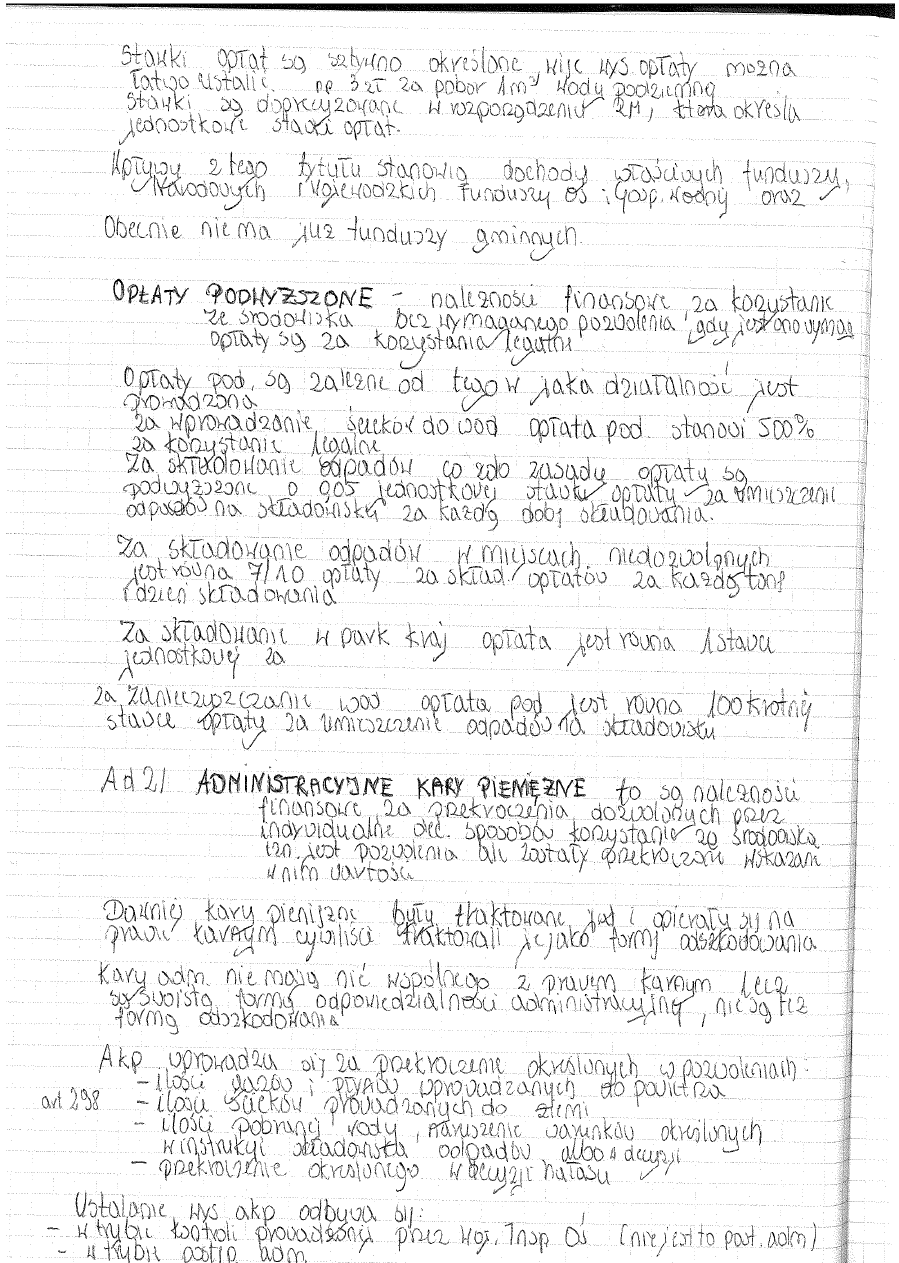 Stawki opłat są sztywno określone więc wys. opłaty można
łatwo ustalić. np 3 zł za pobór 1m³ wody podziemną
Stawki są doprecyzowane w rozporządzeniu RM, która określa
jednostkowe stawki opłat.
Wpływy z tego tytułu stanowią dochody właściwych funduszy,
Narodowych i Wojewódzkich Funduszy OŚ i Gosp. Wodnej oraz
Obecnie nie ma już funduszy gminnych.
OPŁATY PODWYŻSZONE – należności finansowe za korzystanie
ze środowiska bez wymaganego pozwolenia, gdy jest ono wymag
opłaty są za korzystania legalne
Opłaty pod. są zależne od tego w jaka działalność jest
prowadzona
za wprowadzanie ścieków do wód opłata pod. stanowi 500%
za korzystanie legalne
Za składowanie odpadów co do zasady opłaty są
podwyższone o 0,05 jednostkowej stawki opłaty za umieszczenie
odpadów na składowisku za każdą dobę składowania.
Za składowanie odpadów w miejscach niedozwolonych
jest równa 7/10 opłaty za skład. opłatów za każdą tonę
i dzień składowania
Za składowanie w park kraj opłata jest równa 1 stawce
jednostkowej za
za zanieczyszczanie wód opłata pod jest równa 100 krotnej
stawce opłaty za umieszczenie odpadów na składowisku
Ad 2/ ADMINISTRACYJNE KARY PIENIĘŻNE to są należności
finansowe za przekroczenia dozwolonych przez
indywidualne dec. sposobów korzystanie ze środowiska
tzn. jest pozwolenia ale zostały przekroczone wskazane
w nim wartości
Dawniej kary pieniężne były traktowane jak i opierały się na
prawie karnym cywiliści traktowali je jako formę odszkodowania
Kary adm. nie mają nić wspólnego z prawem karnym lecz
są swoistą formą odpowiedzialności administracyjnej, nie są też
formą odszkodowania
Akp wprowadza się za przekroczenie określonych w pozwoleniach:
– ilości gazów i pyłów wprowadzanych do powietrza
art 298 – ilości ścieków prowadzanych do ziemi
– ilości pobranej wody, naruszenie warunków określonych
w instrukcji składowiska odpadów albo w decyzji
– przekroczenie określonego w decyzji hałasu
Ustalanie wys akp odbywa się:
– w trybie kontroli prowadzonej przez Woj. Insp OŚ (nie jest to post. adm)
– w trybie postęp adm.